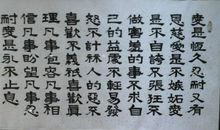 愛是恒久忍耐又有
恩慈愛是不嫉妒愛
是不自誇不張狂不
做害羞的事不求自
己的益處不輕易發
怒不計算人的惡不
喜歡不義祇喜歡真
理凡事包容凡事相
信凡事盼望凡事忍
耐愛是永不止息